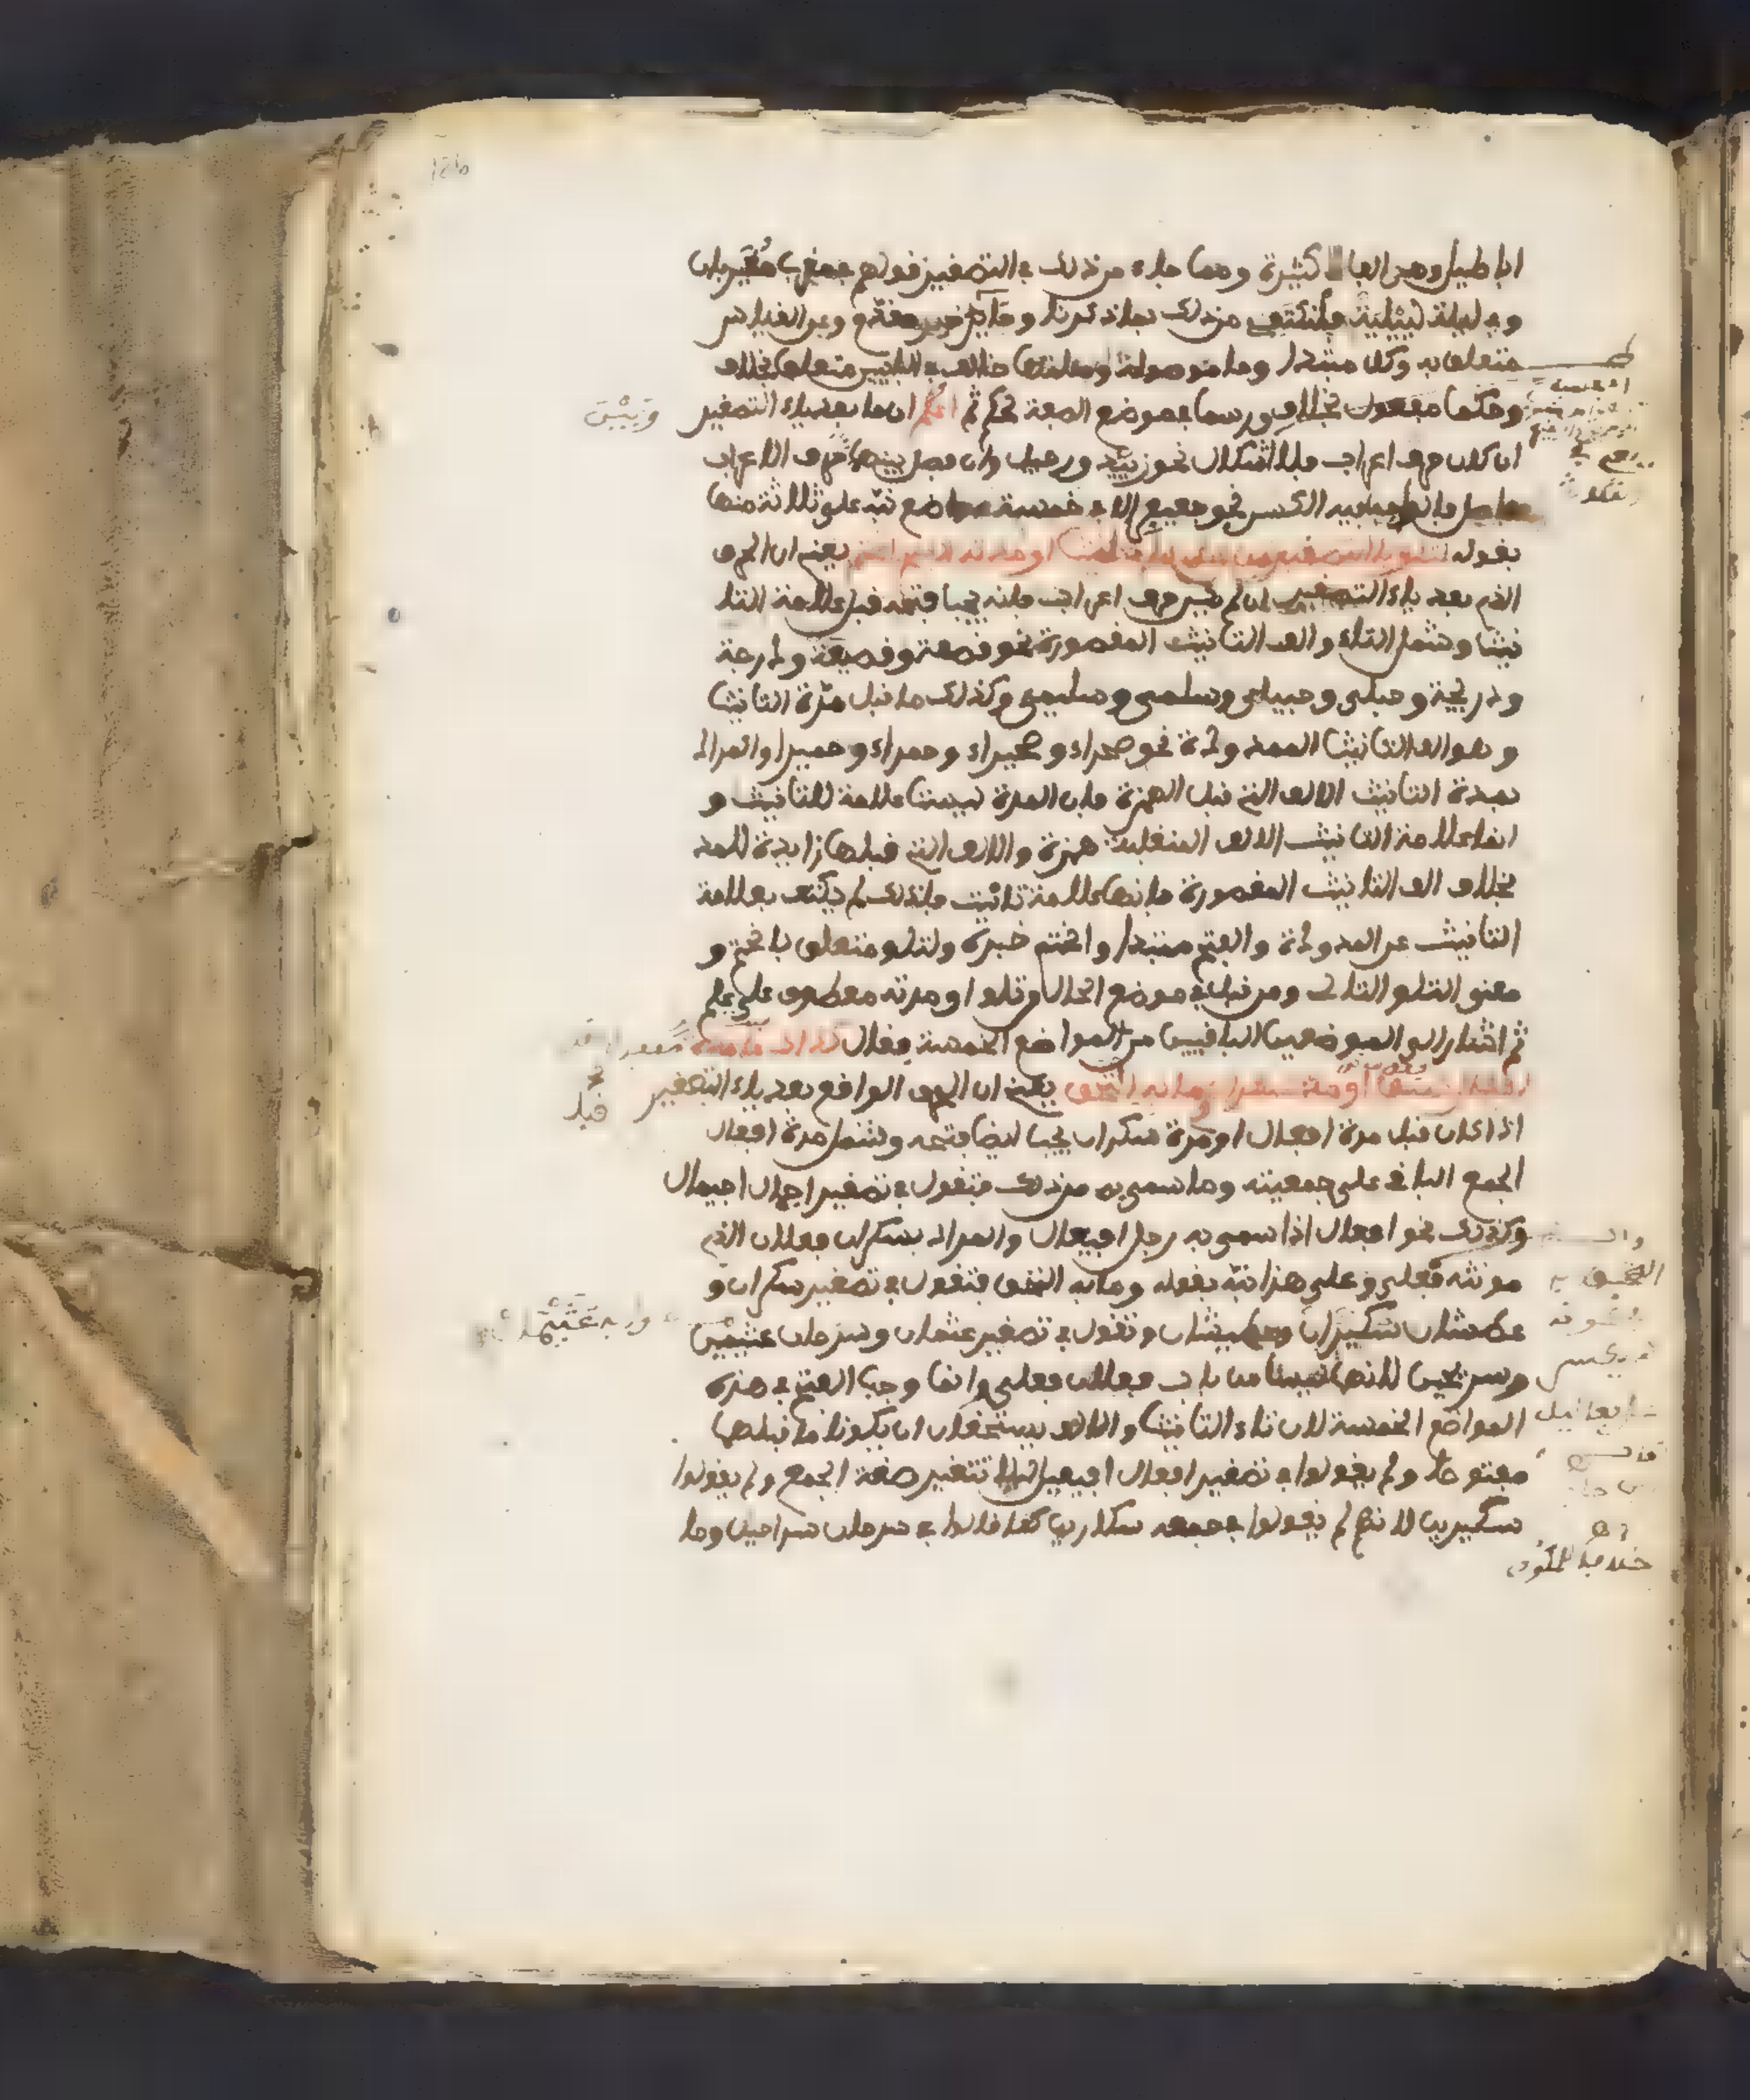 اباطيل وهي الفاظ كثيرة ومما جاء من ذلك في التصغير قولهم في مغرب مغيربان
وفي ليلة لييلية فلنكتف من ذلك بما ذكرنا وحايد خبر مقدم وعن القياس
متعلق به وكل مبتدا وما موصولة وصلتها خالف في البابين متعلق بخالف
وحكما مفعول بخالف ورسما في موضع الصفة لحكم ثم اعلم ان ما بعد ياء التصغير
ان كان حرف اعراب فلا اشكال نحو زييد ورجيل وان فصل بينها وبين حرف الاعراب
فاصل فانه يجب فيه الكسر نحو جعيفر الا في خمسة مواضع نبه على ثلاثة منها
بقوله لتلو يا التصغير من قبل علم تانيث او مدته الفتح انحتم يعني ان الحرف
الذي بعد ياء التصغير ان لم يكن حرف اعراب فانه يجب فتحه قبل علامة التا
نيث وشمل التاء والف التانيث المقصورة نحو قصعة وقصيعة ودرجة
ودريجة وحبلى وحبيلى وسلمى وسليمى وكذلك ما قبل مدة التانيث
وهو الف التانيث الممدودة نحو صحراء وصحيراء وحمراء وحميرا والمراد
بمدة التانيث الالف التي قبل الهمزة فان المدة ليست علامة للتانيث و
انما علامة التانيث الالف المنقلبة همزة والالف التي قبلها زايدة للمد
بخلاف الف التانيث المقصورة فانها علامة تانيث فلذلك لم يكتف بعلامة
التانيث عن المدودة والفتح مبتدا وانحتم خبره ولتلو متعلق بانحتم و
معنى التلو التالي ومن قبل في موضع الحال من تلو او مدته معطوف على علم
ثم اشار الى الموضعين الباقيين من المواضع الخمسة فقال كذاك ما مدة افعال سبق
او مد سكران وما به التحق يعني ان الحرف الواقع بعد ياء التصغير
اذا كان قبل مدة افعال او مدة سكران يجب ايضا فتحه وشمل مدة افعال
الجمع الباقي على جمعيته وما سمي به من ذلك فتقول في تصغير اجمال اجيمال
وكذلك نحو افعال اذا سمي به رجل افيعال والمراد بسكران فعلان الذي
مونثه فعلى وعلى هذا نبه بقوله وما به التحق فتقول في تصغير سكران و
عطشان سكيران وعطيشان وتقول في تصغير عثمان وسرحان عثيمين
وسريحين لانها ليسا من باب فعلان فعلى وانما وجب الفتح في هذه
المواضع الخمسة لان تاء التانيث والالف يستحقان ان يكون ما قبلها
مفتوحا ولم يقولوا في تصغير افعال افيعيل ليلا تتغير صيغة الجمع ولم يقولوا
سكيرين لانهم لم يقولوا في جمعه سكارين كما قالوا في سرحان سراحين وما
وبين
قبل